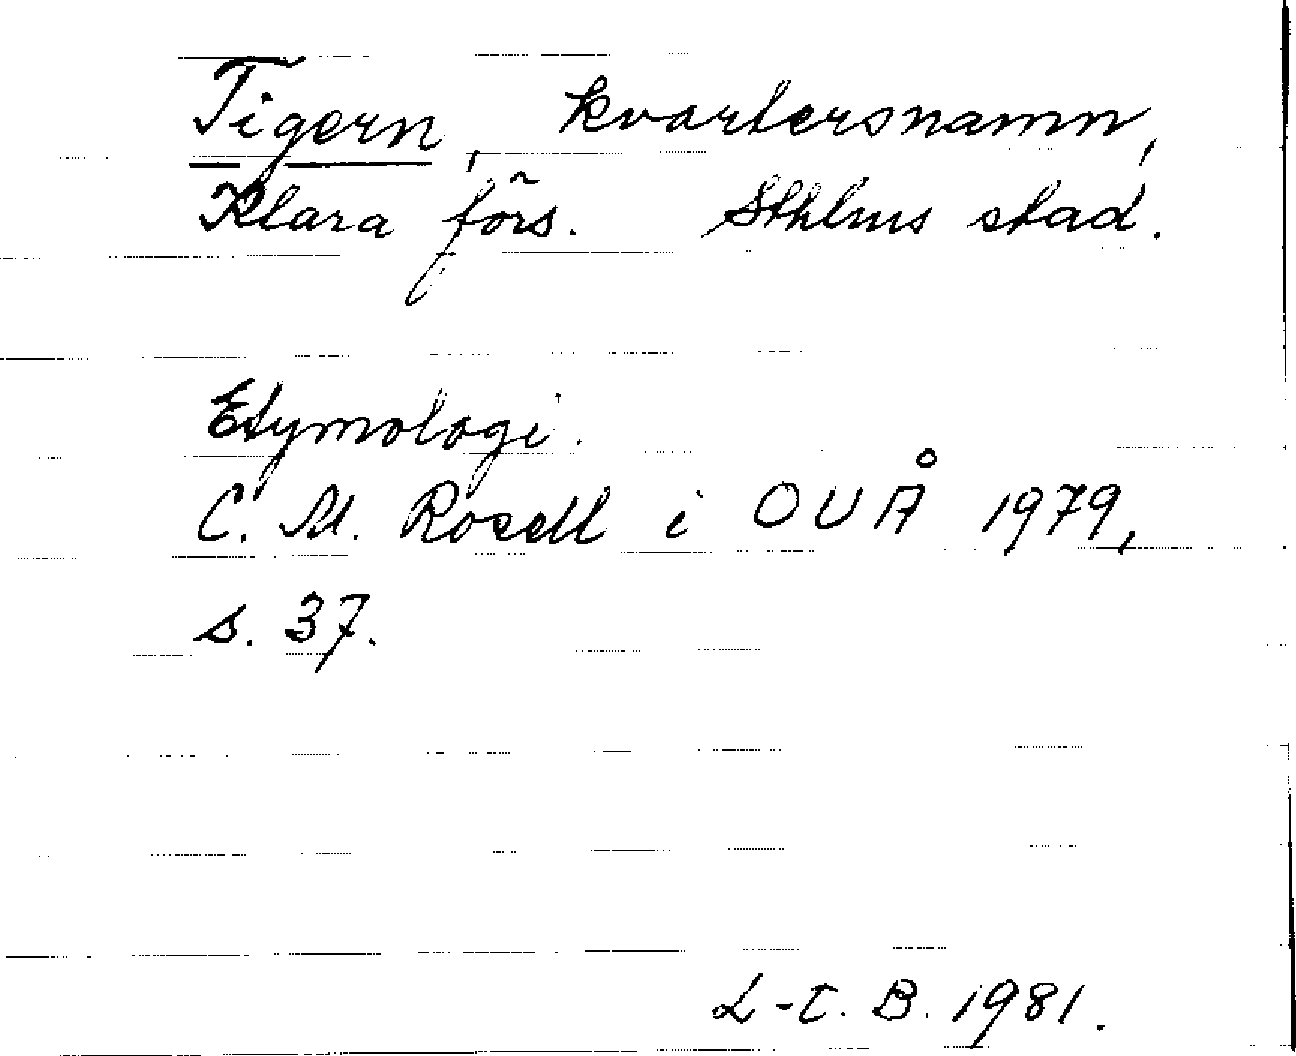 Tigern, kvartersnamn,
Klara förs. Sthlms stad.
Etymologi.
C. M. Rosell i OUÅ 1979,
s. 37.
L-C. B. 1981.